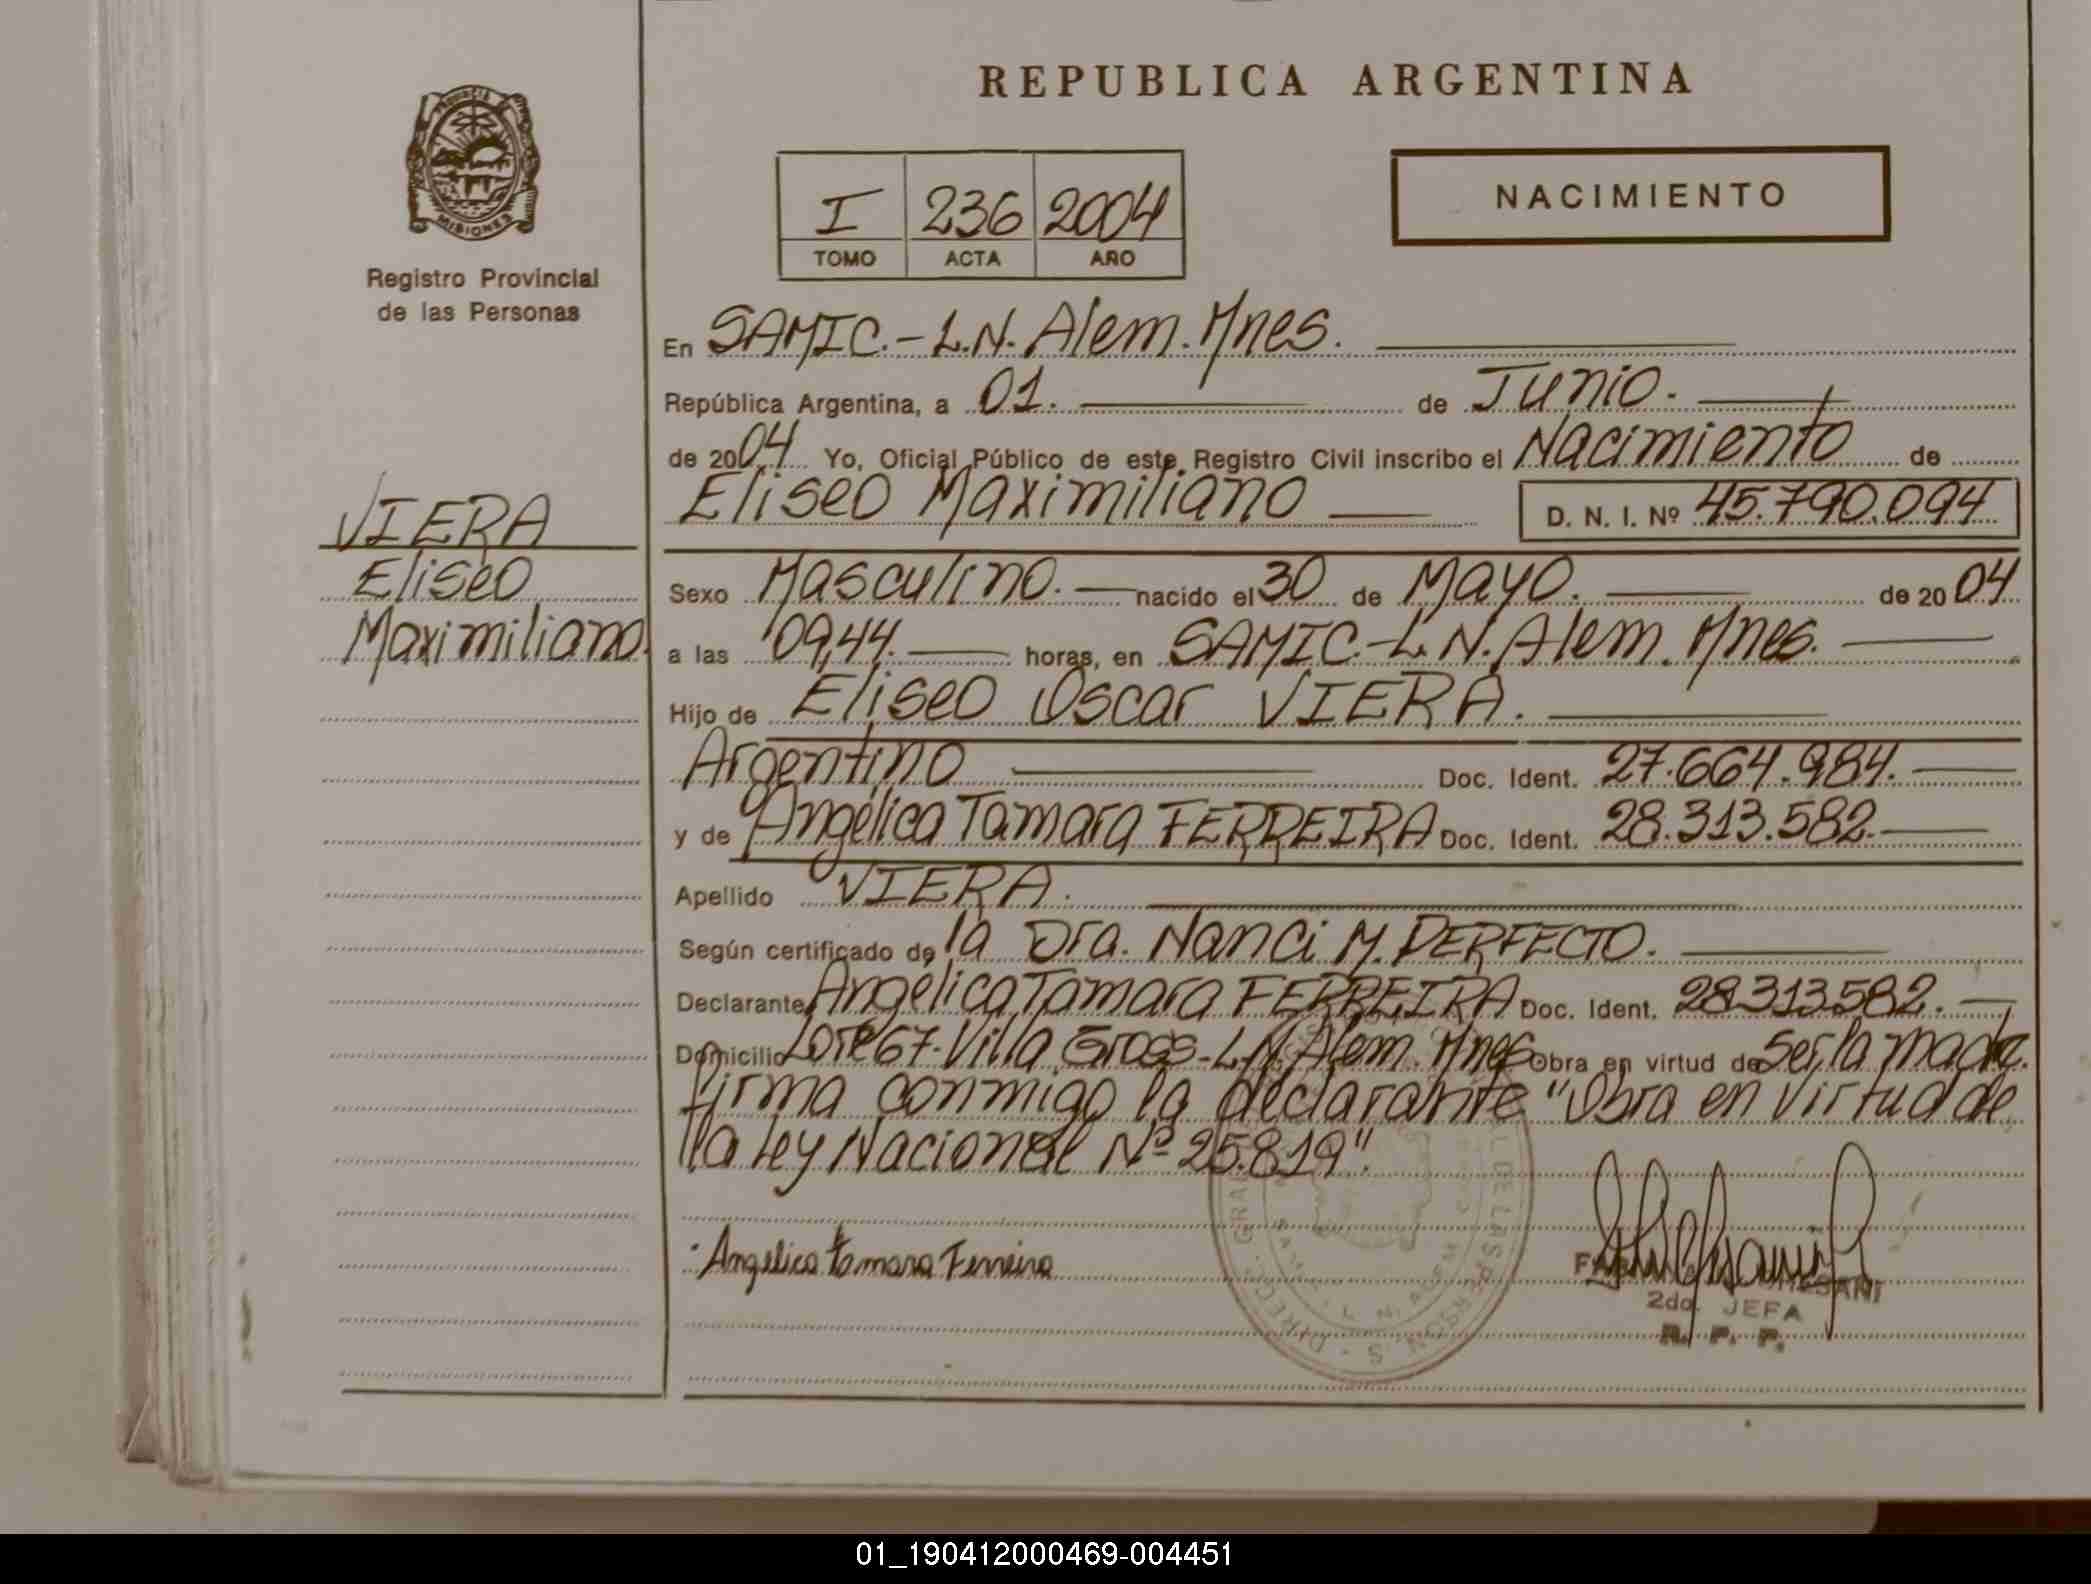 REPUBLICA ARGENTINA
PROVINCIA DE
MISIONES
Registro Provincial
de las Personas
I 236 2004
TOMO ACTA AÑO
NACIMIENTO
En SAMIC.-L.N. Alem. Mnes.
República Argentina, a 01. de Junio.
de 2004 Yo, Oficial Público de este Registro Civil inscribo el Nacimiento de
Eliseo Maximiliano D. N. I. Nº 45.790.094
VIERA
Eliseo
Maximiliano.
Sexo Masculino. nacido el 30 de Mayo. de 2004
a las 09,44. horas, en SAMIC.-L.N. Alem. Mnes.
Hijo de Eliseo Oscar VIERA.
Argentino Doc. Ident. 27.664.984.
y de Angélica Tamara FERREIRA Doc. Ident. 28.313.582.
Apellido VIERA.
Según certificado de la Dra. Nanci M. PERFECTO.
Declarante Angelica Tamara FERREIRA Doc. Ident. 28.313.582.
Domicilio Lote 67. Villa Gross-L.N. Alem. Mnes Obra en virtud de ser la madre.
firma conmigo la declarante "Obra en virtud de
la Ley Nacional Nº 25.819".
Angelica tamara Ferreira
2da. JEFA
R. P. P.
01_190412000469-004451